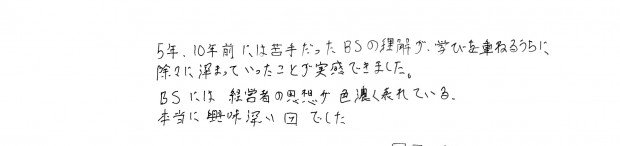 5年、10年前には苦手だったBSの理解が、学びを重ねるうちに、
除々に深まっていったことが実感できました。
BSには 経営者の思想が色濃く表れている。
本当に興味深い回でした